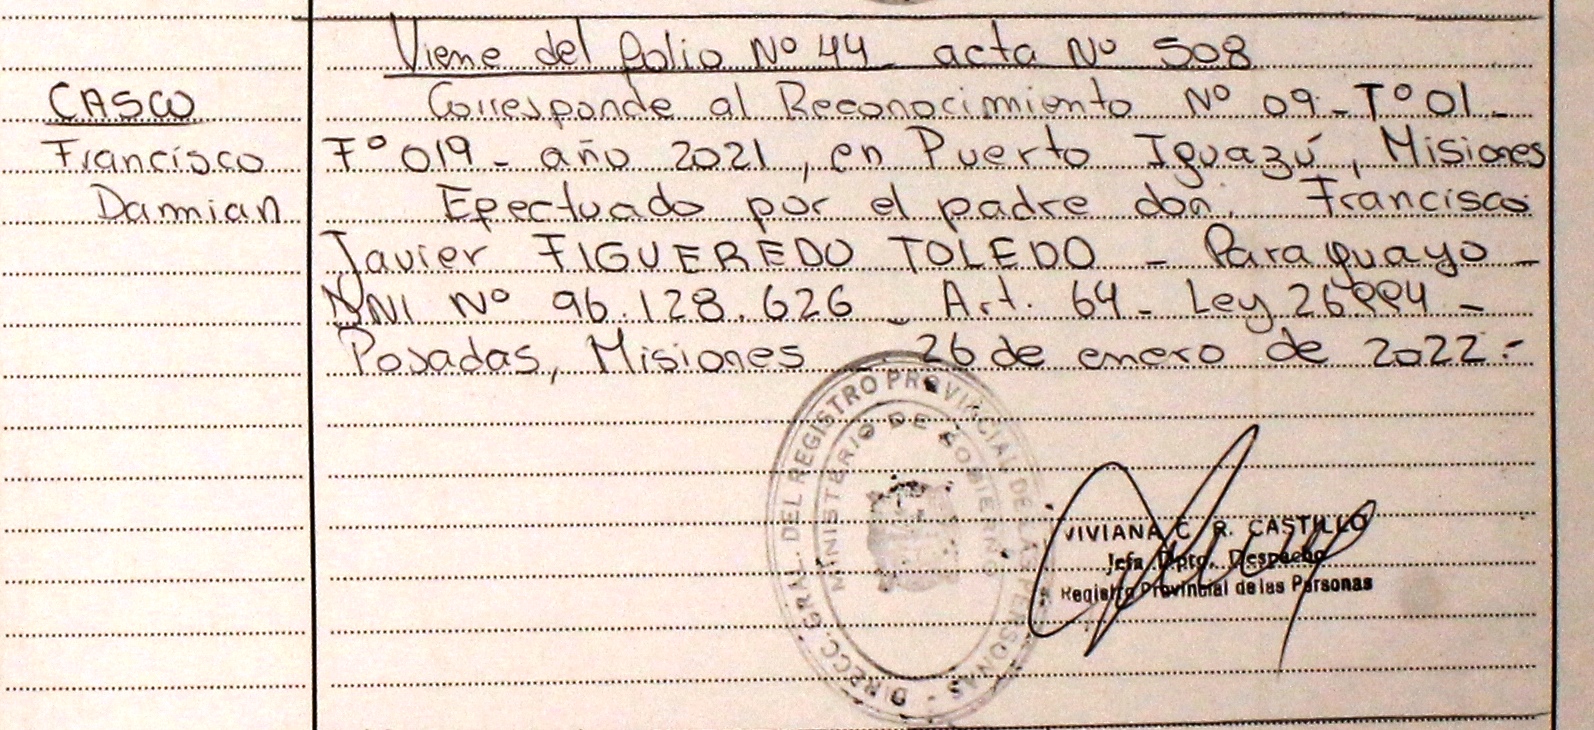 Viene del folio Nº 44 - acta Nº 508
CASCO
Francisco
Damian
Corresponde al Reconocimiento Nº 09 - Tº 01 -
Fº 019 - año 2021, en Puerto Iguazú, Misiones
Efectuado por el padre don. Francisco
Javier FIGUEREDO TOLEDO - Paraguayo -
DNI Nº 96.128.626 - Art. 64 - Ley 26994 -
Posadas, Misiones 26 de enero de 2022.-
DIRECC. GRAL. DEL REGISTRO PROVINCIAL DE LAS PERSONAS -
MINISTERIO DE GOBIERNO
VIVIANA C. R. CASTILLO
Jefa Dpto. Despacho
Registro Provincial de las Personas